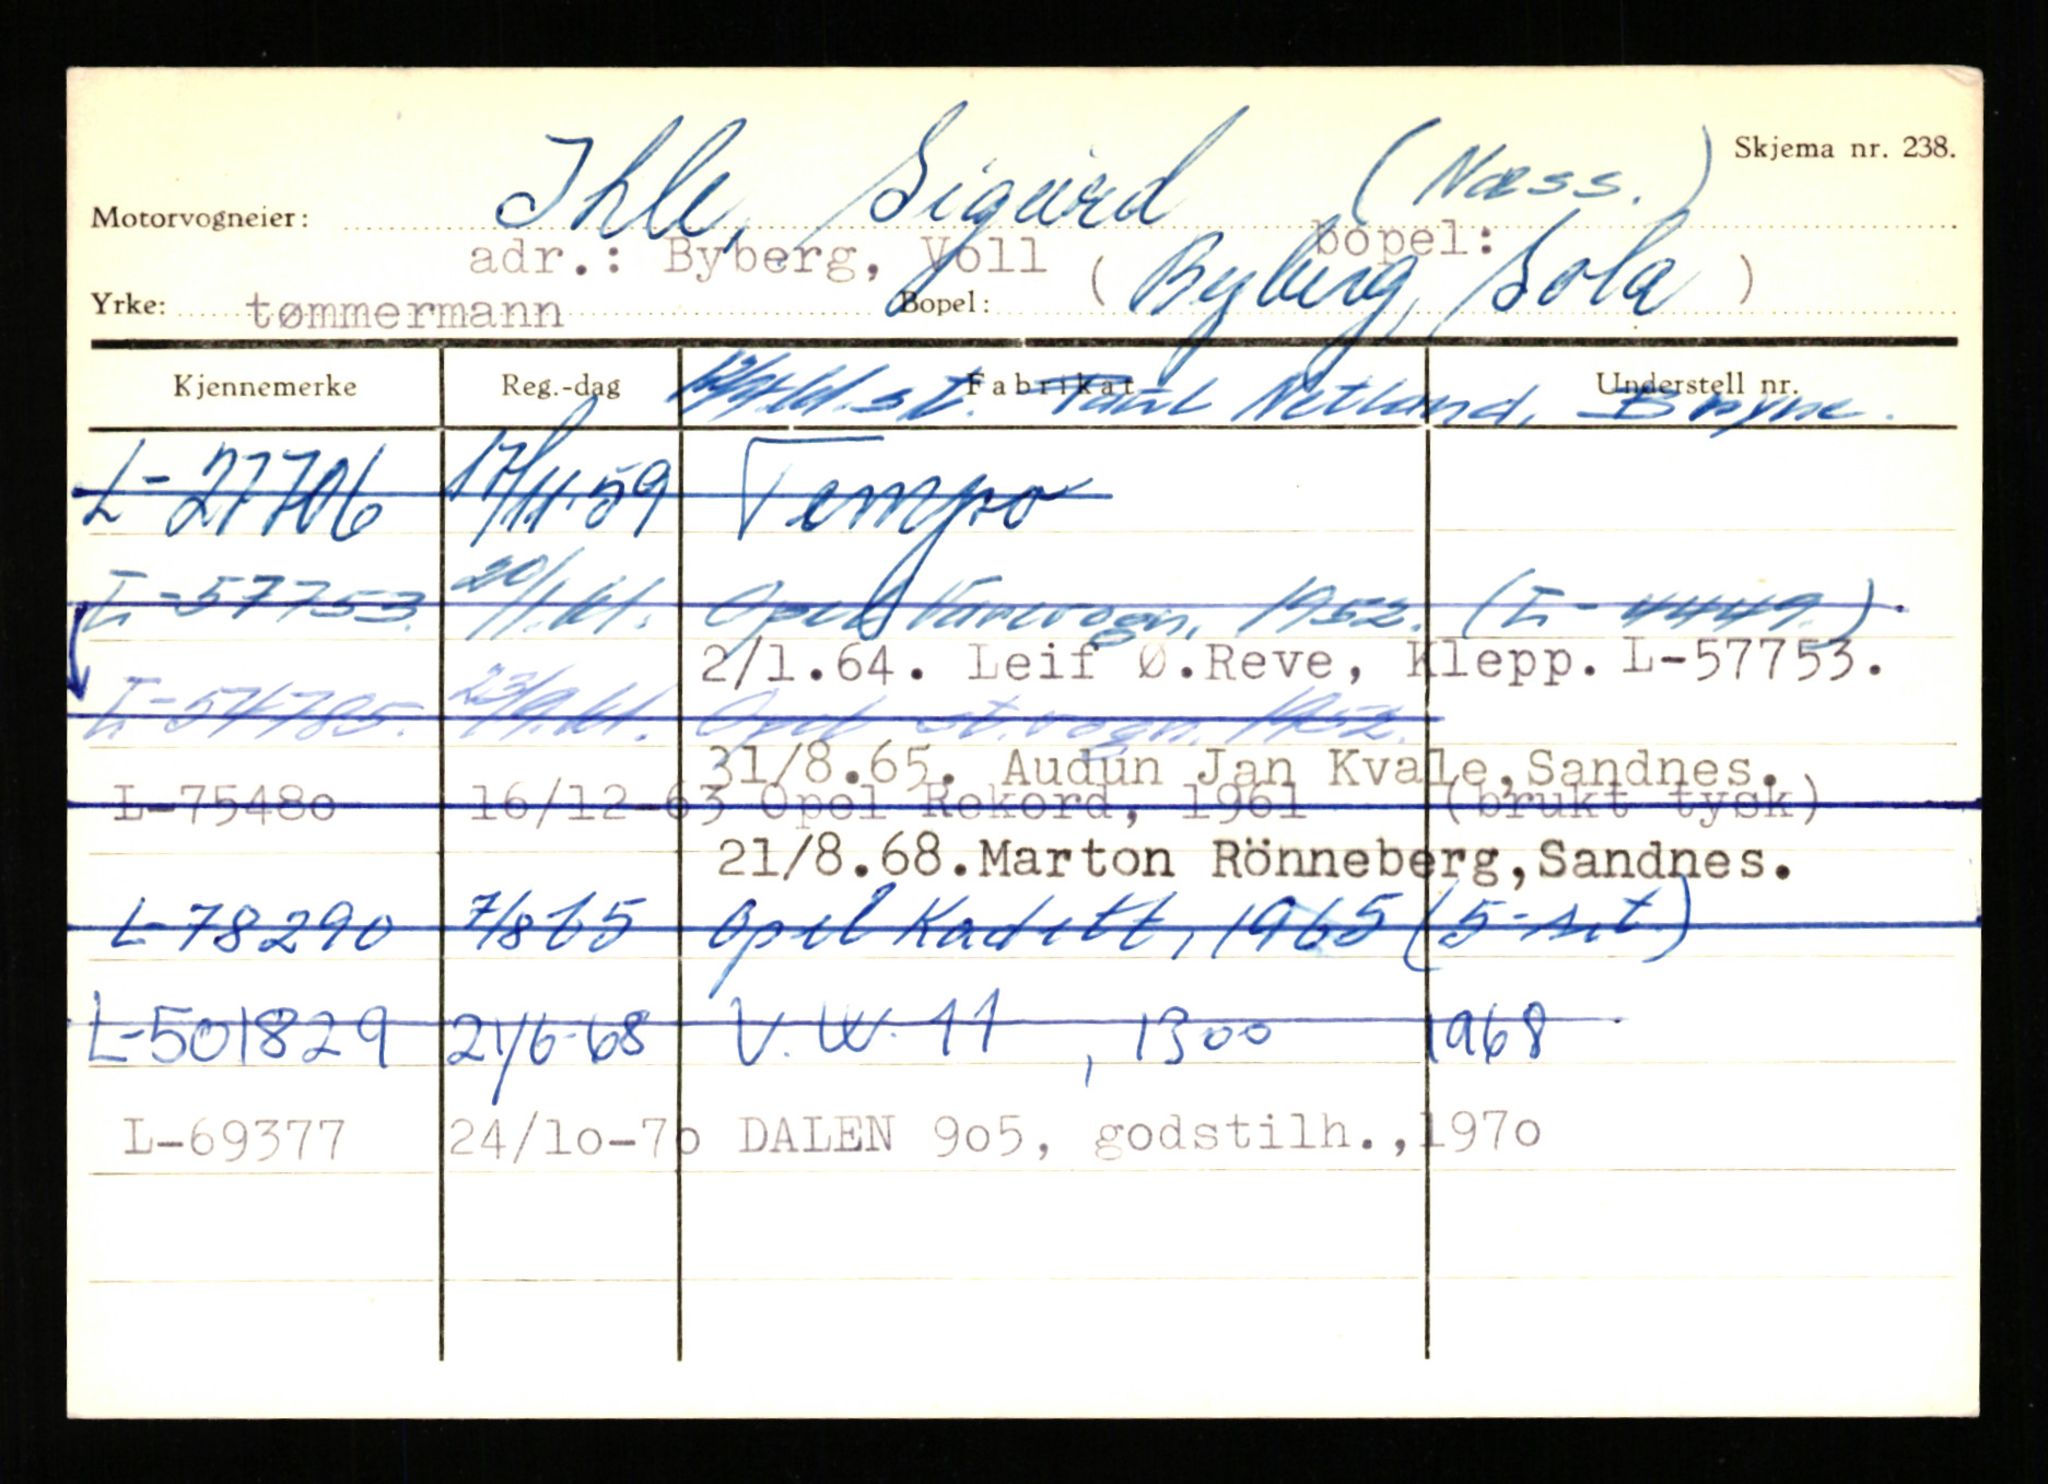 Skjema nr. 238.
Motorvogneier: Ihle, Sigurd (Næss.)
adr.: Byberg, Voll bopel:
Yrke: tømmermann Bopel: (Byberg, Sola)
Kjennemerke Reg.-dag Fabrikat Understell nr.
st. Paul Netland, Bryne.
L-27706 17/11.59 Tempo
L-57753. 20/1.61. Opel Varevogn, 1952. (L-4449.)
2/1.64. Leif Ø.Reve, Klepp. L-57753.
L-54785. 23/9.61. Opel st.vogn. 1952.
31/8.65. Audun Jan Kvale,Sandnes.
L-7548o 16/12-63 Opel Rekord, 1961 (brukt tysk)
21/8.68.Marton Rönneberg,Sandnes.
L-78290 7/8 65 Opel Kadett, 1965 (5-sit.)
L-501829 21/6-68 V.W. 11, 1300 1968
L-69377 24/1o-7o DALEN 9o5, godstilh.,197o